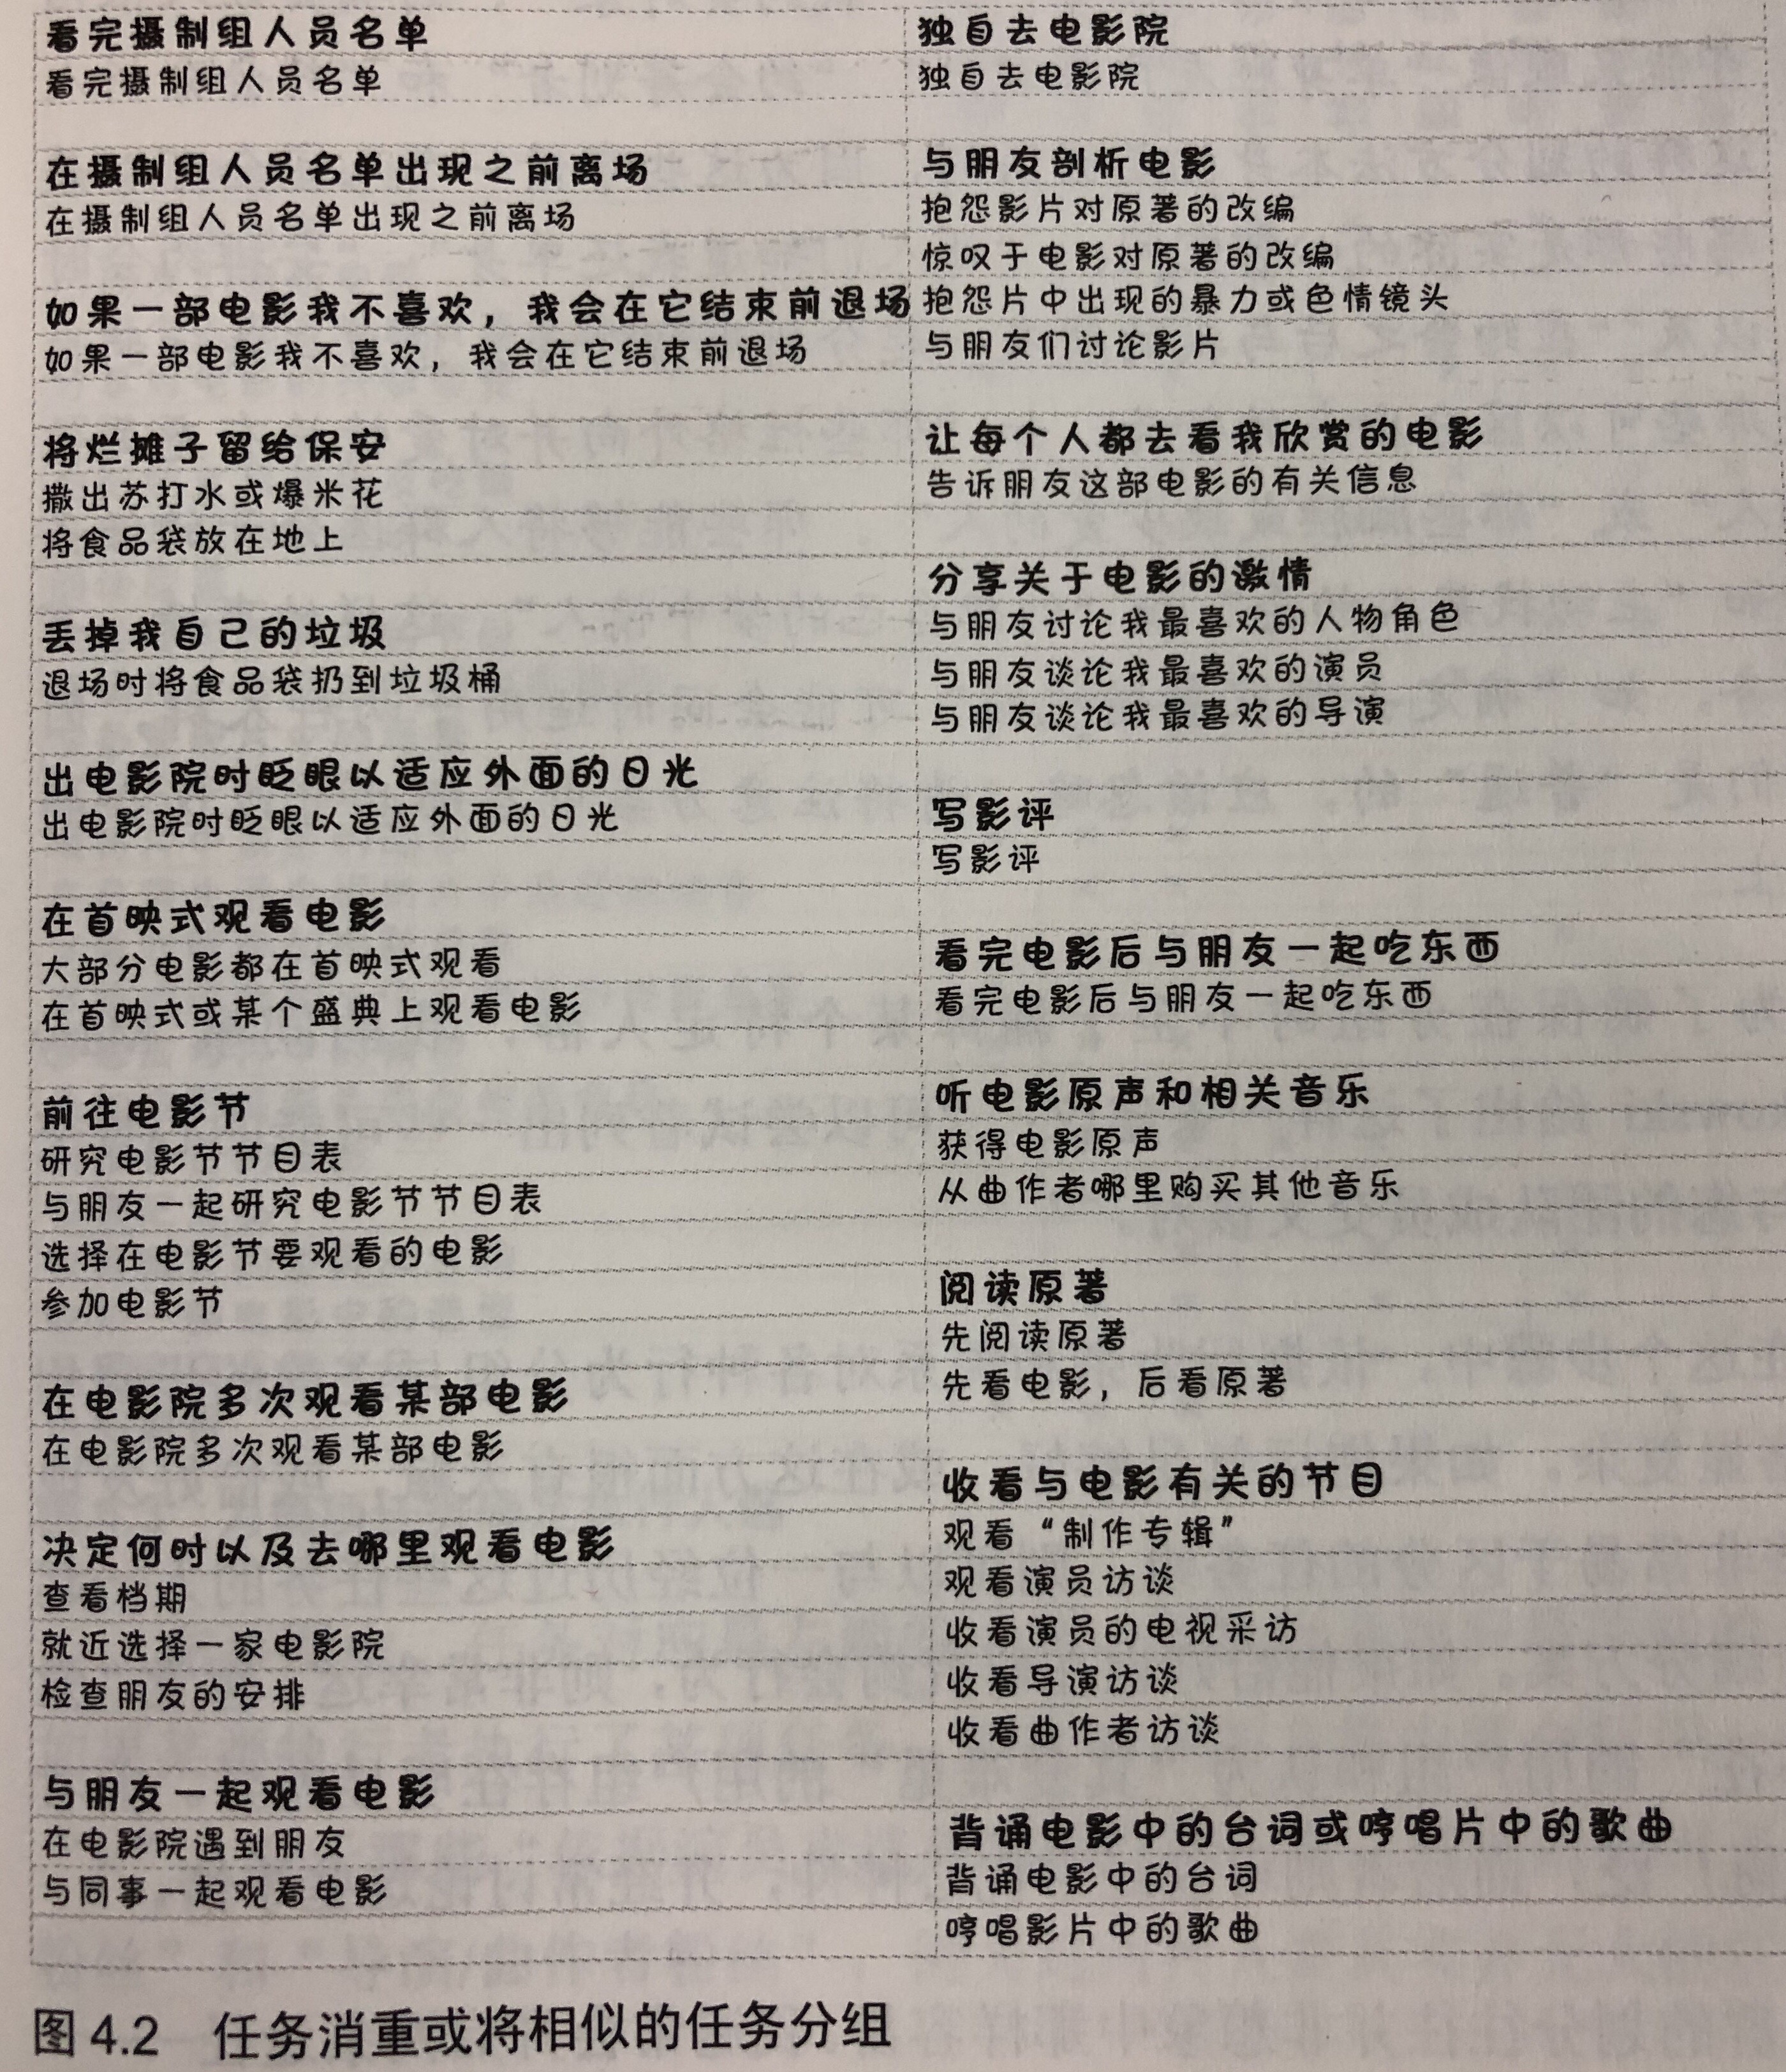 看完摄制组人员名单
看完摄制组人员名单
在摄制组人员名单出现之前离场
在摄制组人员名单出现之前离场
如果一部电影我不喜欢，我会在它结束前退场
如果一部电影我不喜欢，我会在它结束前退场
将烂摊子留给保安
撒出苏打水或爆米花
将食品袋放在地上
丢掉我自己的垃圾
退场时将食品袋扔到垃圾桶
出电影院时眨眼以适应外面的日光
出电影院时眨眼以适应外面的日光
在首映式观看电影
大部分电影都在首映式观看
在首映式或某个盛典上观看电影
前往电影节
研究电影节节目表
与朋友一起研究电影节节目表
选择在电影节要观看的电影
参加电影节
在电影院多次观看某部电影
在电影院多次观看某部电影
决定何时以及去哪里观看电影
查看档期
就近选择一家电影院
检查朋友的安排
与朋友一起观看电影
在电影院遇到朋友
与同事一起观看电影
独自去电影院
独自去电影院
与朋友剖析电影
抱怨影片对原著的改编
惊叹于电影对原著的改编
抱怨片中出现的暴力或色情镜头
与朋友们讨论影片
让每个人都去看我欣赏的电影
告诉朋友这部电影的有关信息
分享关于电影的激情
与朋友讨论我最喜欢的人物角色
与朋友谈论我最喜欢的演员
与朋友谈论我最喜欢的导演
写影评
写影评
看完电影后与朋友一起吃东西
看完电影后与朋友一起吃东西
听电影原声和相关音乐
获得电影原声
从曲作者哪里购买其他音乐
阅读原著
先阅读原著
先看电影，后看原著
收看与电影有关的节目
观看“制作专辑”
观看演员访谈
收看演员的电视采访
收看导演访谈
收看曲作者访谈
背诵电影中的台词或哼唱片中的歌曲
背诵电影中的台词
哼唱影片中的歌曲
图4.2 任务消重或将相似的任务分组